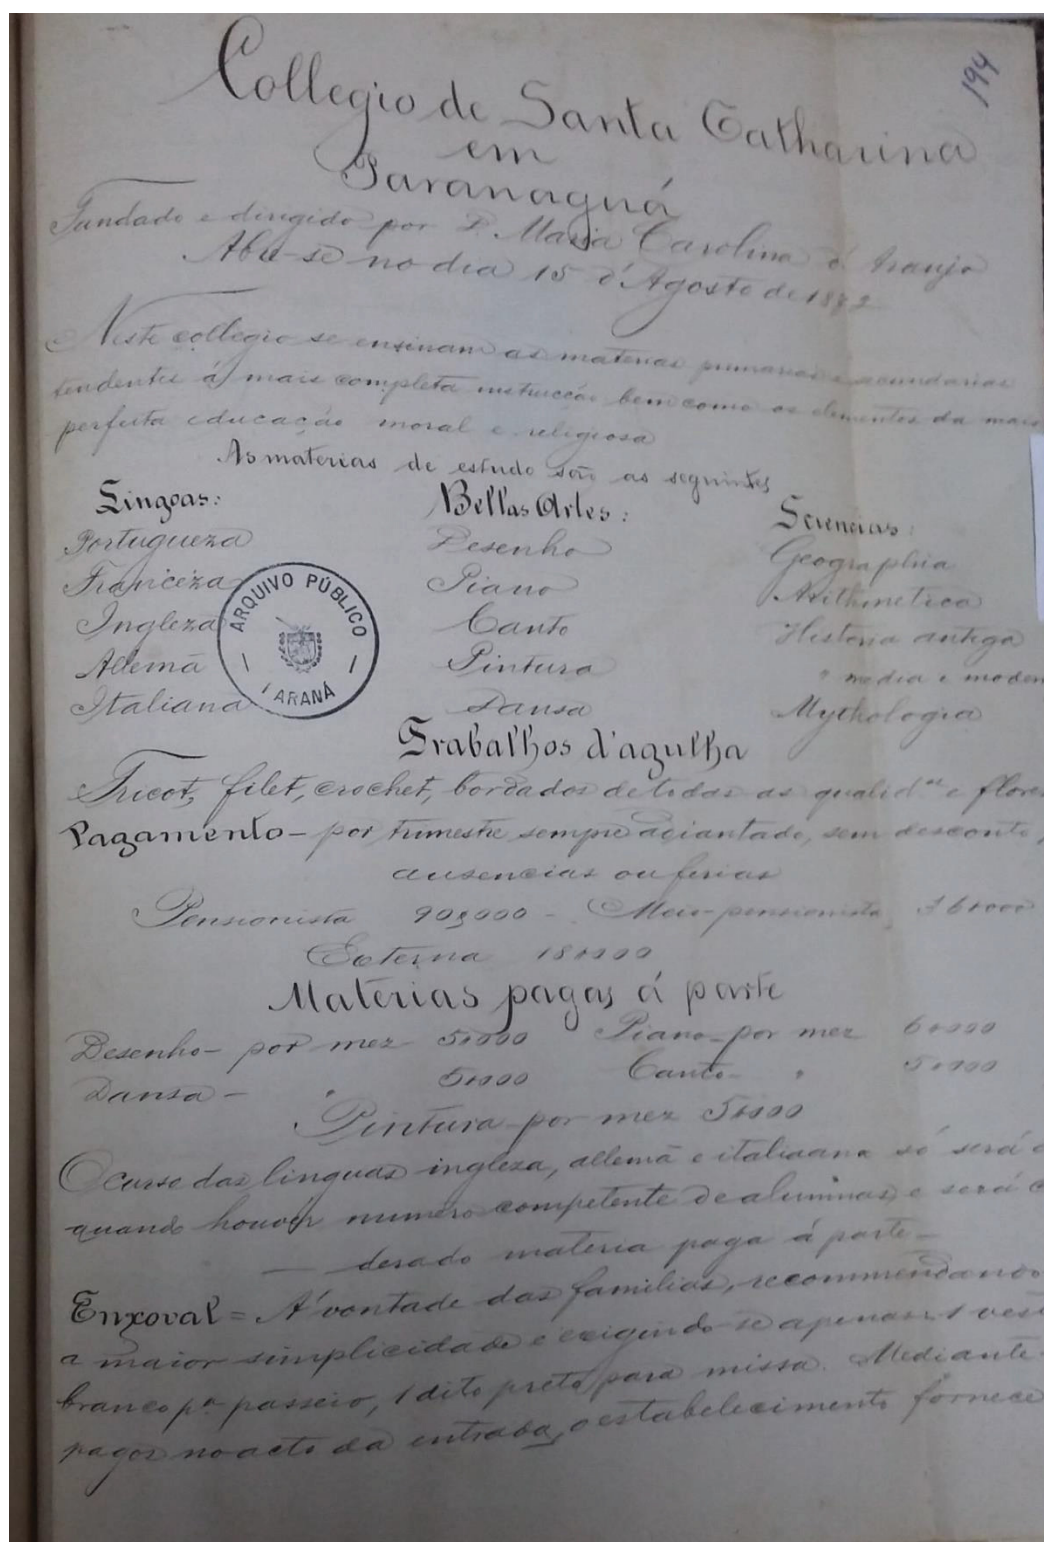 194
Collegio de Santa Catharina
em
Paranaguá
Fundado e dirigido por D. Maria Carolina d'Araujo
Abre-se no dia 15 d'Agosto de 1872
Neste collegio se ensinam as materias primarias e secundarias
tendentes á mais completa instrucção bem como os elementos da mais
perfeita educação moral e religiosa
As materias de estudo são as seguintes
Lingoas: Bellas Artes: Sciencias:
Portugueza Desenho Geographia
Franceza Piano Arithmetica
Ingleza Canto Historia antiga
Allemã Pintura " media e moder
Italiana Dansa Mythologia
ARQUIVO PÚBLICO
PARANÁ
Trabalhos d'agulha
Tricot, filet, crochet, bordados de todas as qualid.es e flore
Pagamento - por trimestre sempre adiantado, sem desconto,
ausencias ou ferias
Pensionista 90$000 - Meio-pensionista 36$000
Externa 18$000
Materias pagas á parte
Desenho - por mez 5$000 Piano - por mez 6$000
Dansa - " 5$000 Canto - " 5$000
Pintura - por mez 5$000
O curso das linguas ingleza, allemã e italiana só será
quando houver numero competente de alumnas, e será c
derado materia paga á parte -
Enxoval = Á vontade das familias, recommendando
a maior simplicidade e exigindo-se apenas 1 vest
branco p.a passeio, 1 dito preto para missa. Mediante
pagos no acto da entrada, o estabelecimento fornece